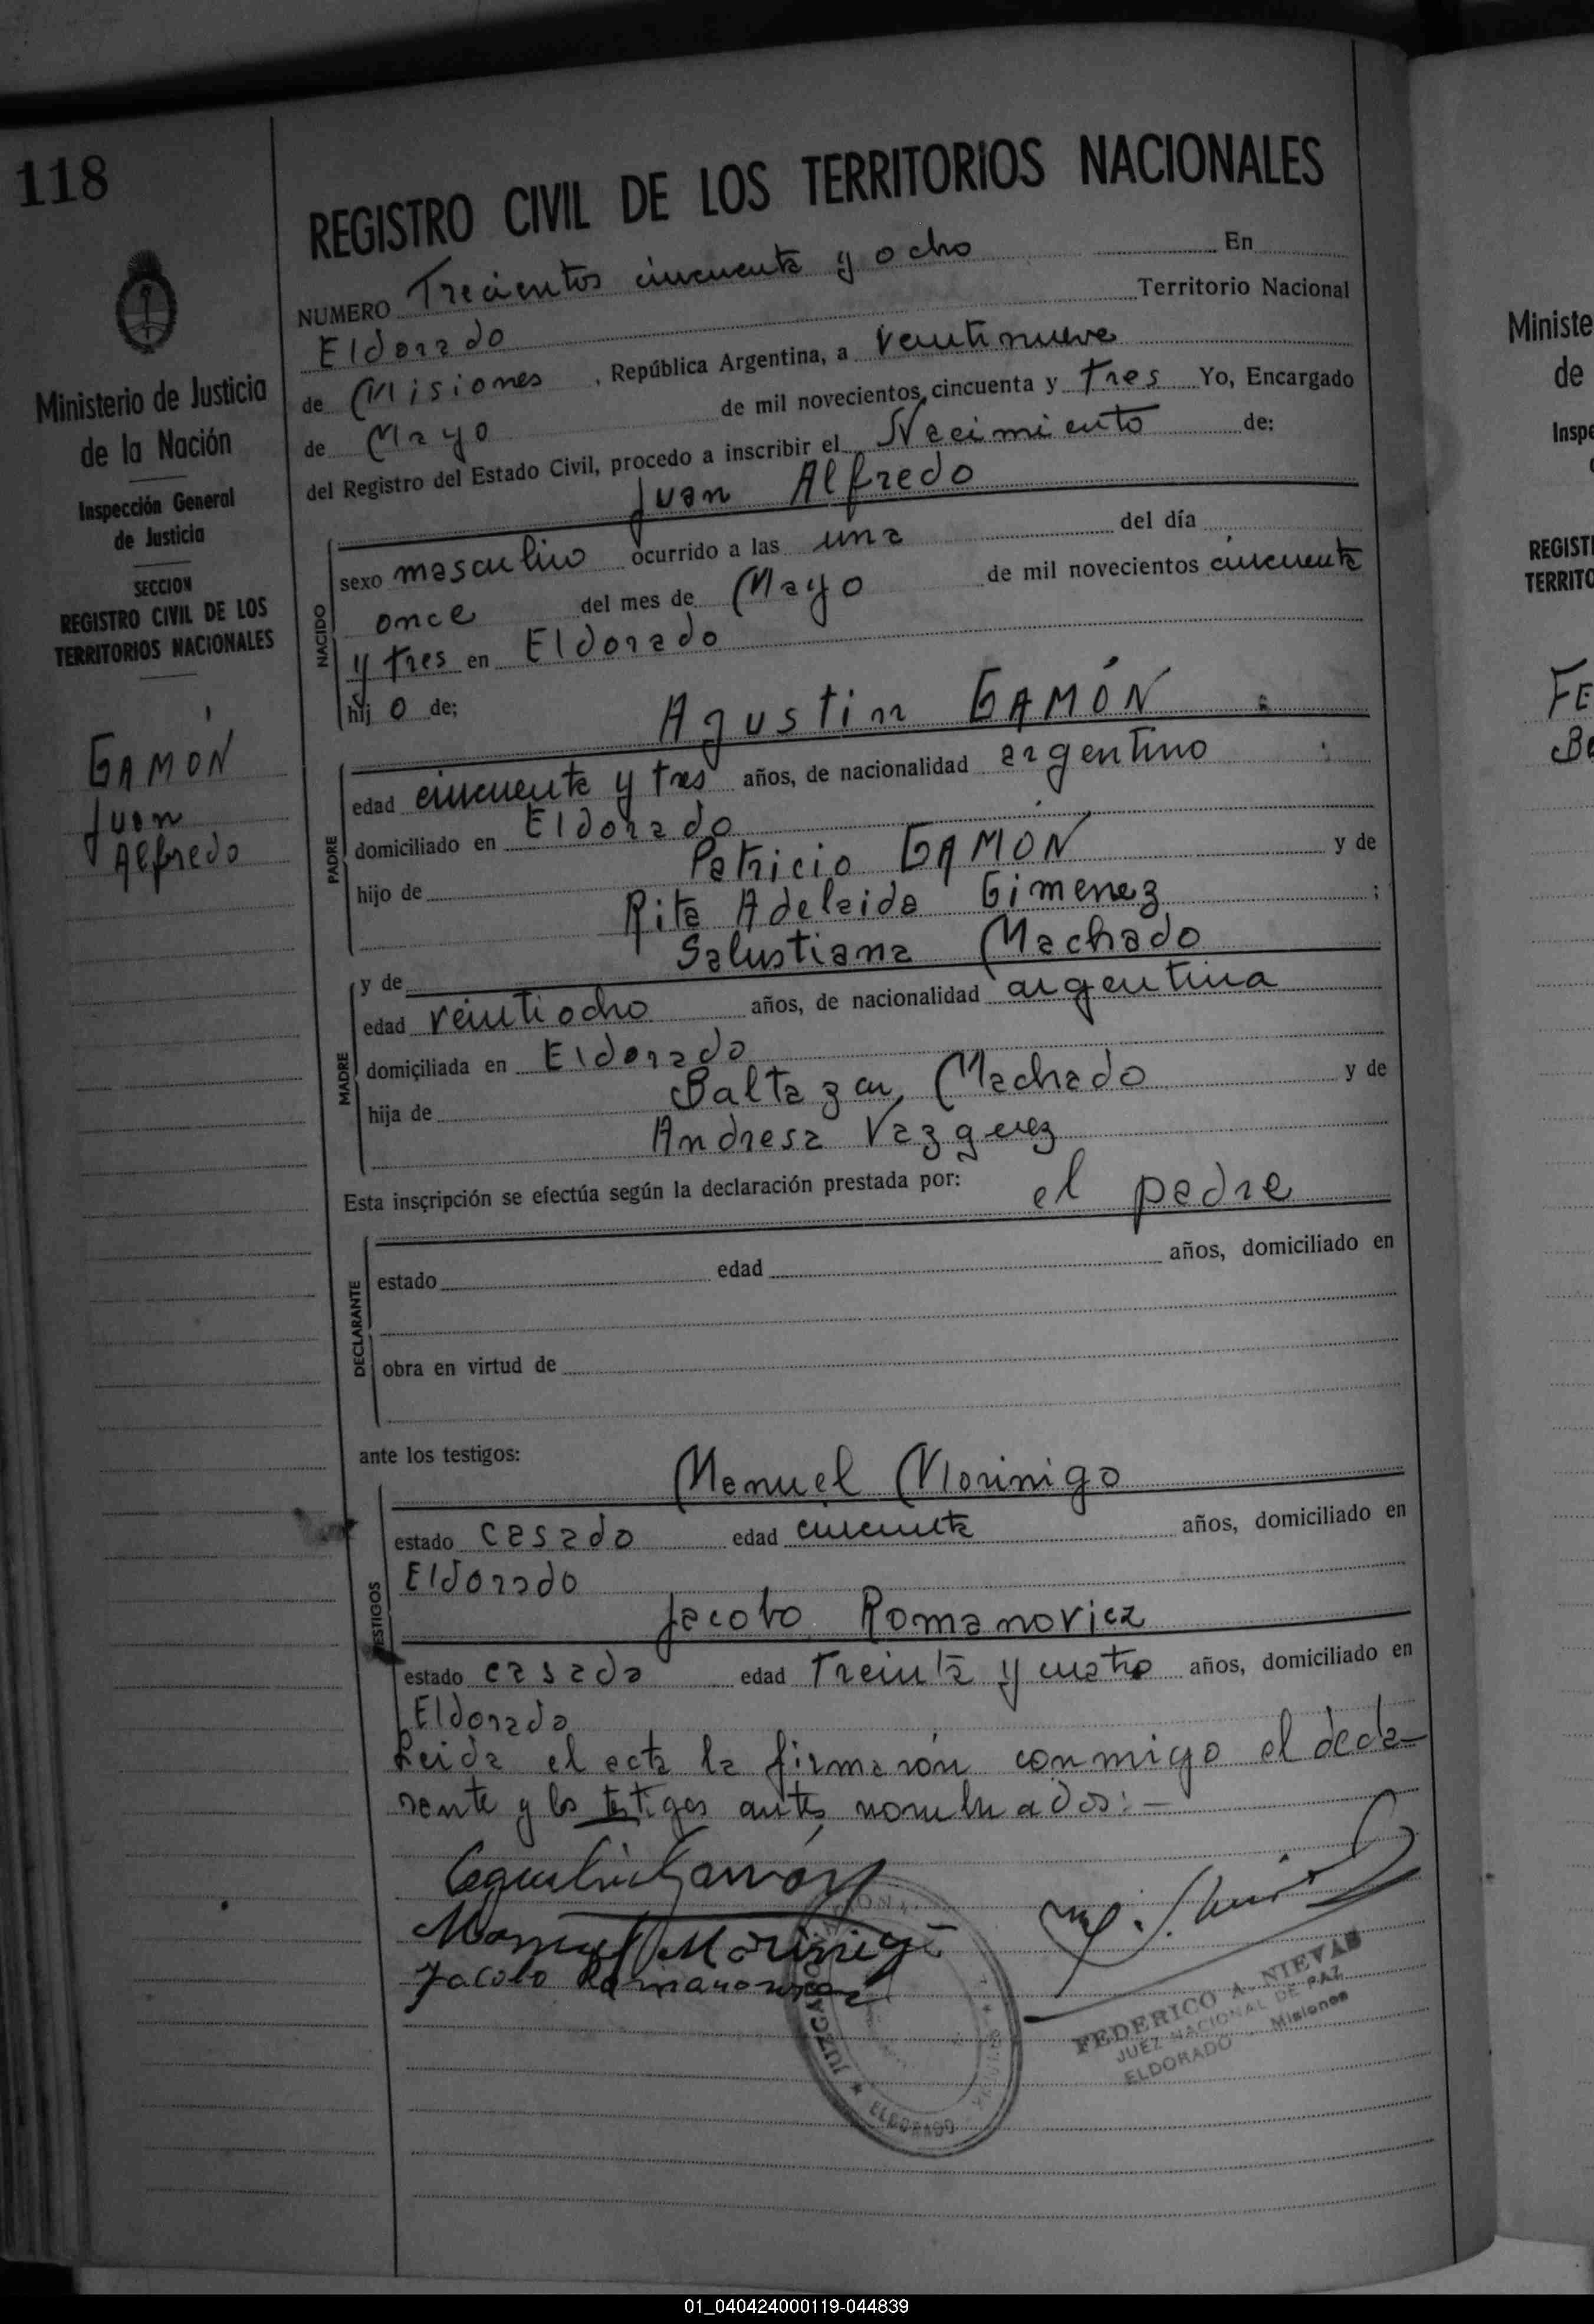 118
Ministerio de Justicia
de la Nación
Inspección General
de Justicia
SECCION
REGISTRO CIVIL DE LOS
TERRITORIOS NACIONALES
GAMÓN
Juan
Alfredo
REGISTRO CIVIL DE LOS TERRITORIOS NACIONALES
NUMERO Trecientos cincuenta y ocho En
Eldorado Territorio Nacional
de Misiones , República Argentina, a veintinueve
de Mayo de mil novecientos cincuenta y tres Yo, Encargado
del Registro del Estado Civil, procedo a inscribir el Nacimiento de:
Juan Alfredo
NACIDO
sexo masculino ocurrido a las una del día
once del mes de Mayo de mil novecientos cincuenta
y tres en Eldorado
hij o de;
Agustin GAMÓN
PADRE
edad cincuenta y tres años, de nacionalidad argentino
domiciliado en Eldorado
hijo de Patricio GAMON y de
Rita Adelaida Gimenez ;
y de Salustiana Machado
MADRE
edad veintiocho años, de nacionalidad argentina
domiciliada en Eldorado
hija de Baltazar Machado y de
Andresa Vazquez
Esta inscripción se efectúa según la declaración prestada por: el padre
DECLARANTE
estado edad años, domiciliado en
obra en virtud de
ante los testigos:
Manuel Morinigo
TESTIGOS
estado casado edad cincuenta años, domiciliado en
Eldorado
Jacobo Romanovicz
estado casado edad treinta y cuatro años, domiciliado en
Eldorado
Leida el acta la firmaron conmigo el decla-
rante y los testigos antes nombrados:—
Agustin Gamón
Manuel Morinigo
Jacobo Romanowicz
JUZGADO
ELDORADO
FEDERICO A. NIEVAS
JUEZ NACIONAL DE PAZ
ELDORADO Misiones
Ministe
de
Inspe
REGISTR
TERRITO
FE
Be
01_040424000119-044839